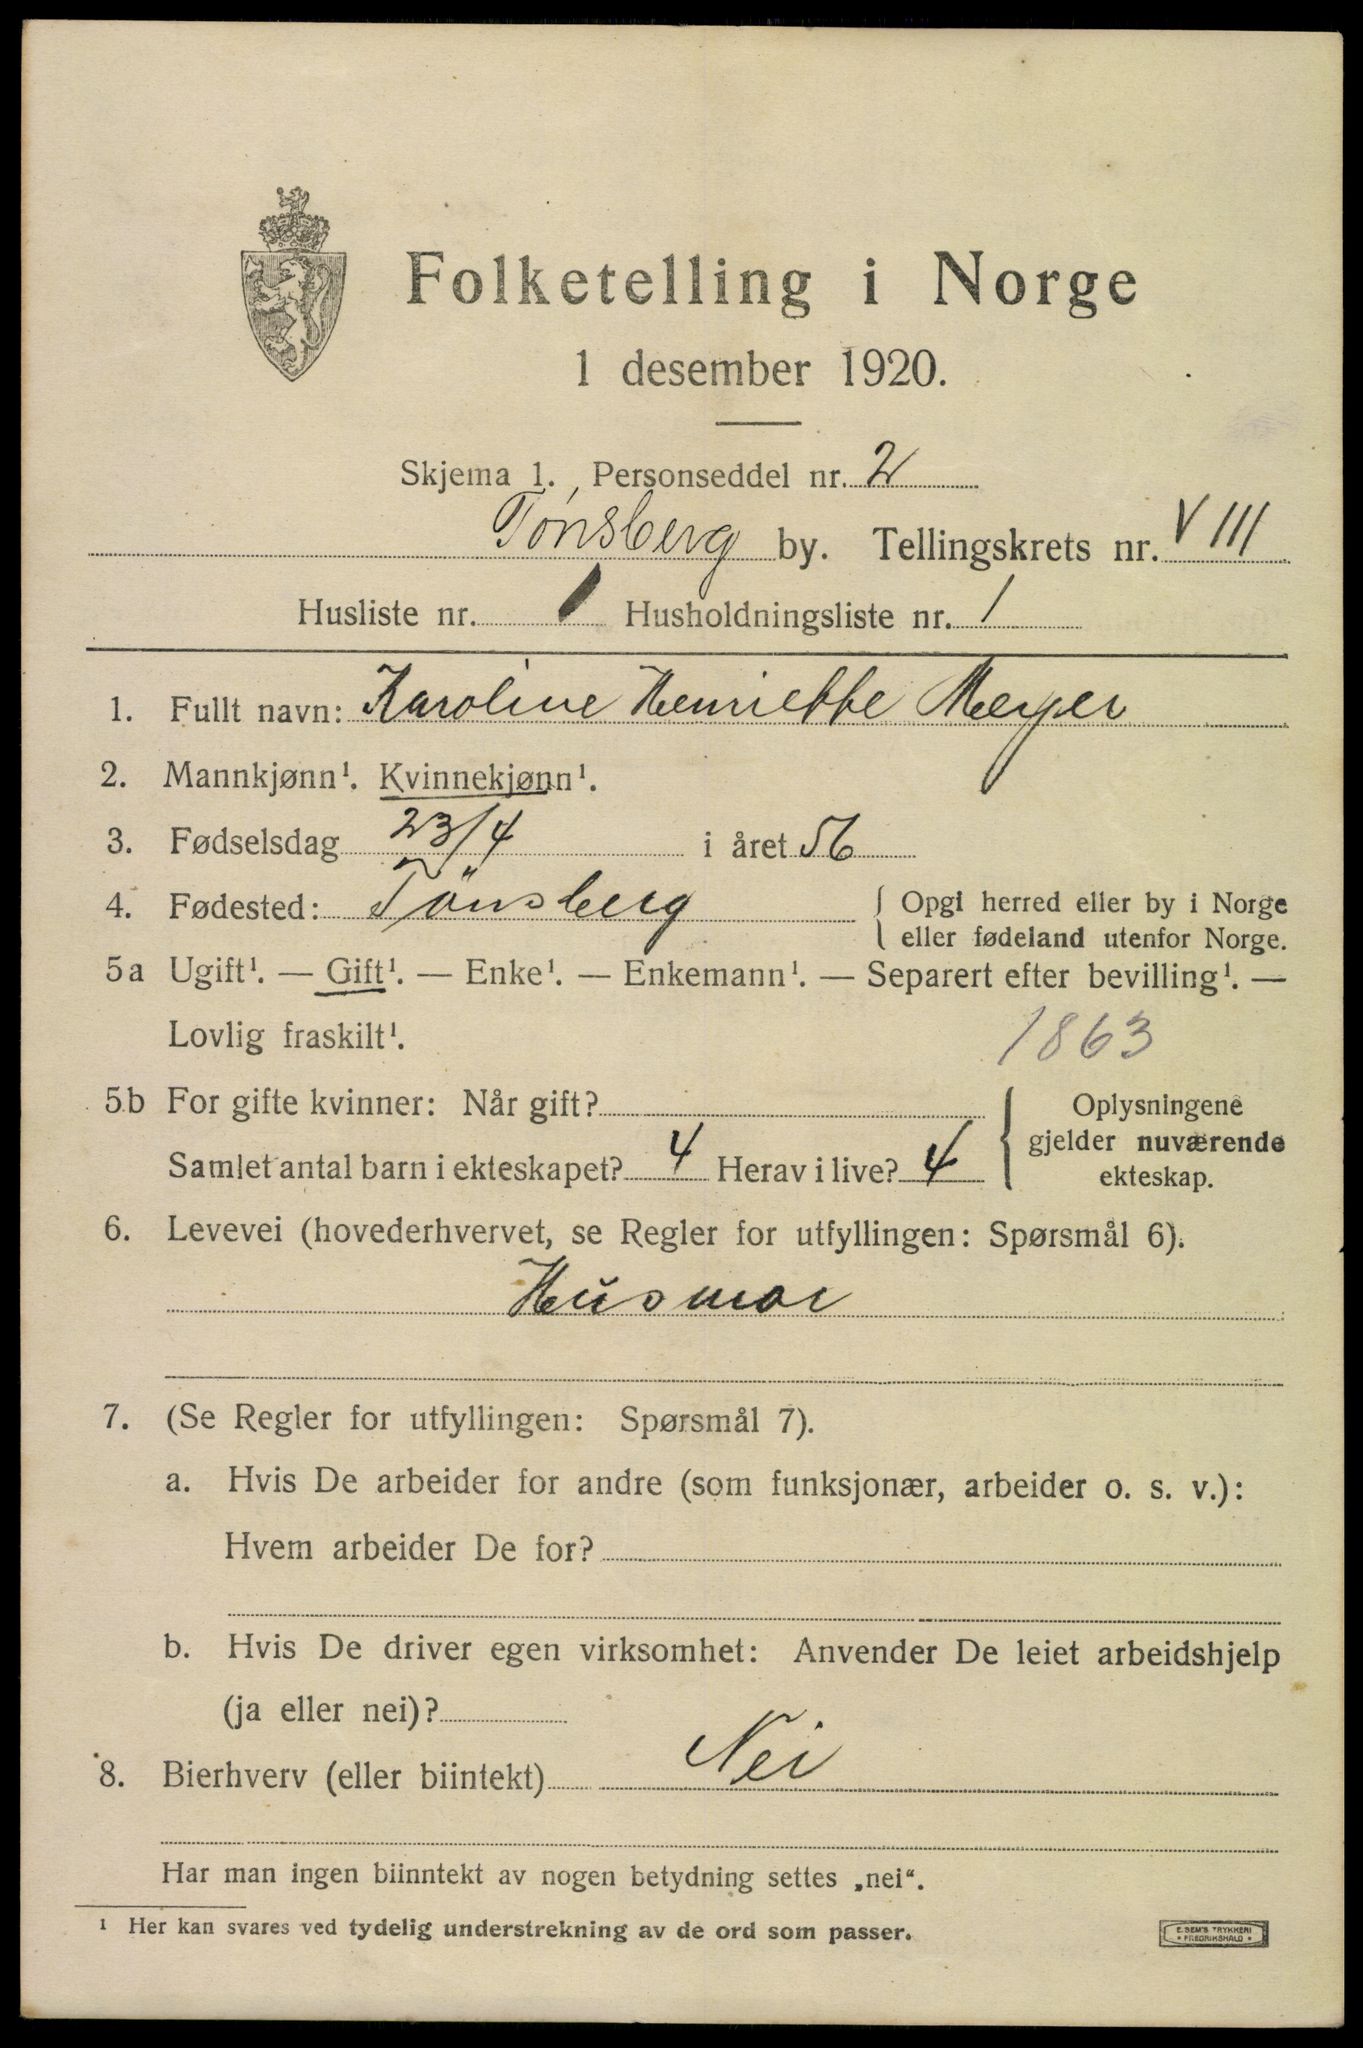 Folketelling i Norge
1 desember 1920.
Skjema 1. Personseddel nr. 2
Tønsberg by. Tellingskrets nr. VIII
Husliste nr. 1 Husholdningsliste nr. 1
1. Fullt navn: Karoline Henriette Meyer
2. Mannkjønn¹. Kvinnekjønn¹.
3. Fødselsdag 23/4 i året 56
4. Fødested: Tönsberg { Opgi herred eller by i Norge
eller fødeland utenfor Norge.
5a Ugift¹. — Gift¹. — Enke¹. — Enkemann¹. — Separert efter bevilling¹. —
Lovlig fraskilt¹.
1863
5b For gifte kvinner: Når gift? { Oplysningene
gjelder nuværende
Samlet antal barn i ekteskapet? 4 Herav i live? 4
ekteskap.
6. Levevei (hovederhvervet, se Regler for utfyllingen: Spørsmål 6).
Husmor
7. (Se Regler for utfyllingen: Spørsmål 7).
a. Hvis De arbeider for andre (som funksjonær, arbeider o. s. v.):
Hvem arbeider De for?
b. Hvis De driver egen virksomhet: Anvender De leiet arbeidshjelp
(ja eller nei)?
8. Bierhverv (eller biintekt) Nei
Har man ingen biinntekt av nogen betydning settes „nei“.
¹ Her kan svares ved tydelig understrekning av de ord som passer.
E. SEM'S TRYKKERI
* FREDRIKSHALD *